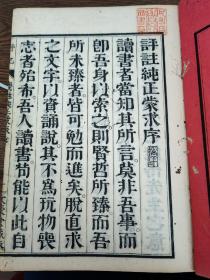 評註純正蒙求序
讀書者當知其所言莫非吾事而
卽吾身以索之則賢哲所臻而吾
所未臻者皆可勉而進矣脱直求
之文字以資誦說其不爲玩物喪
志者殆希吾人讀書苟能以此自